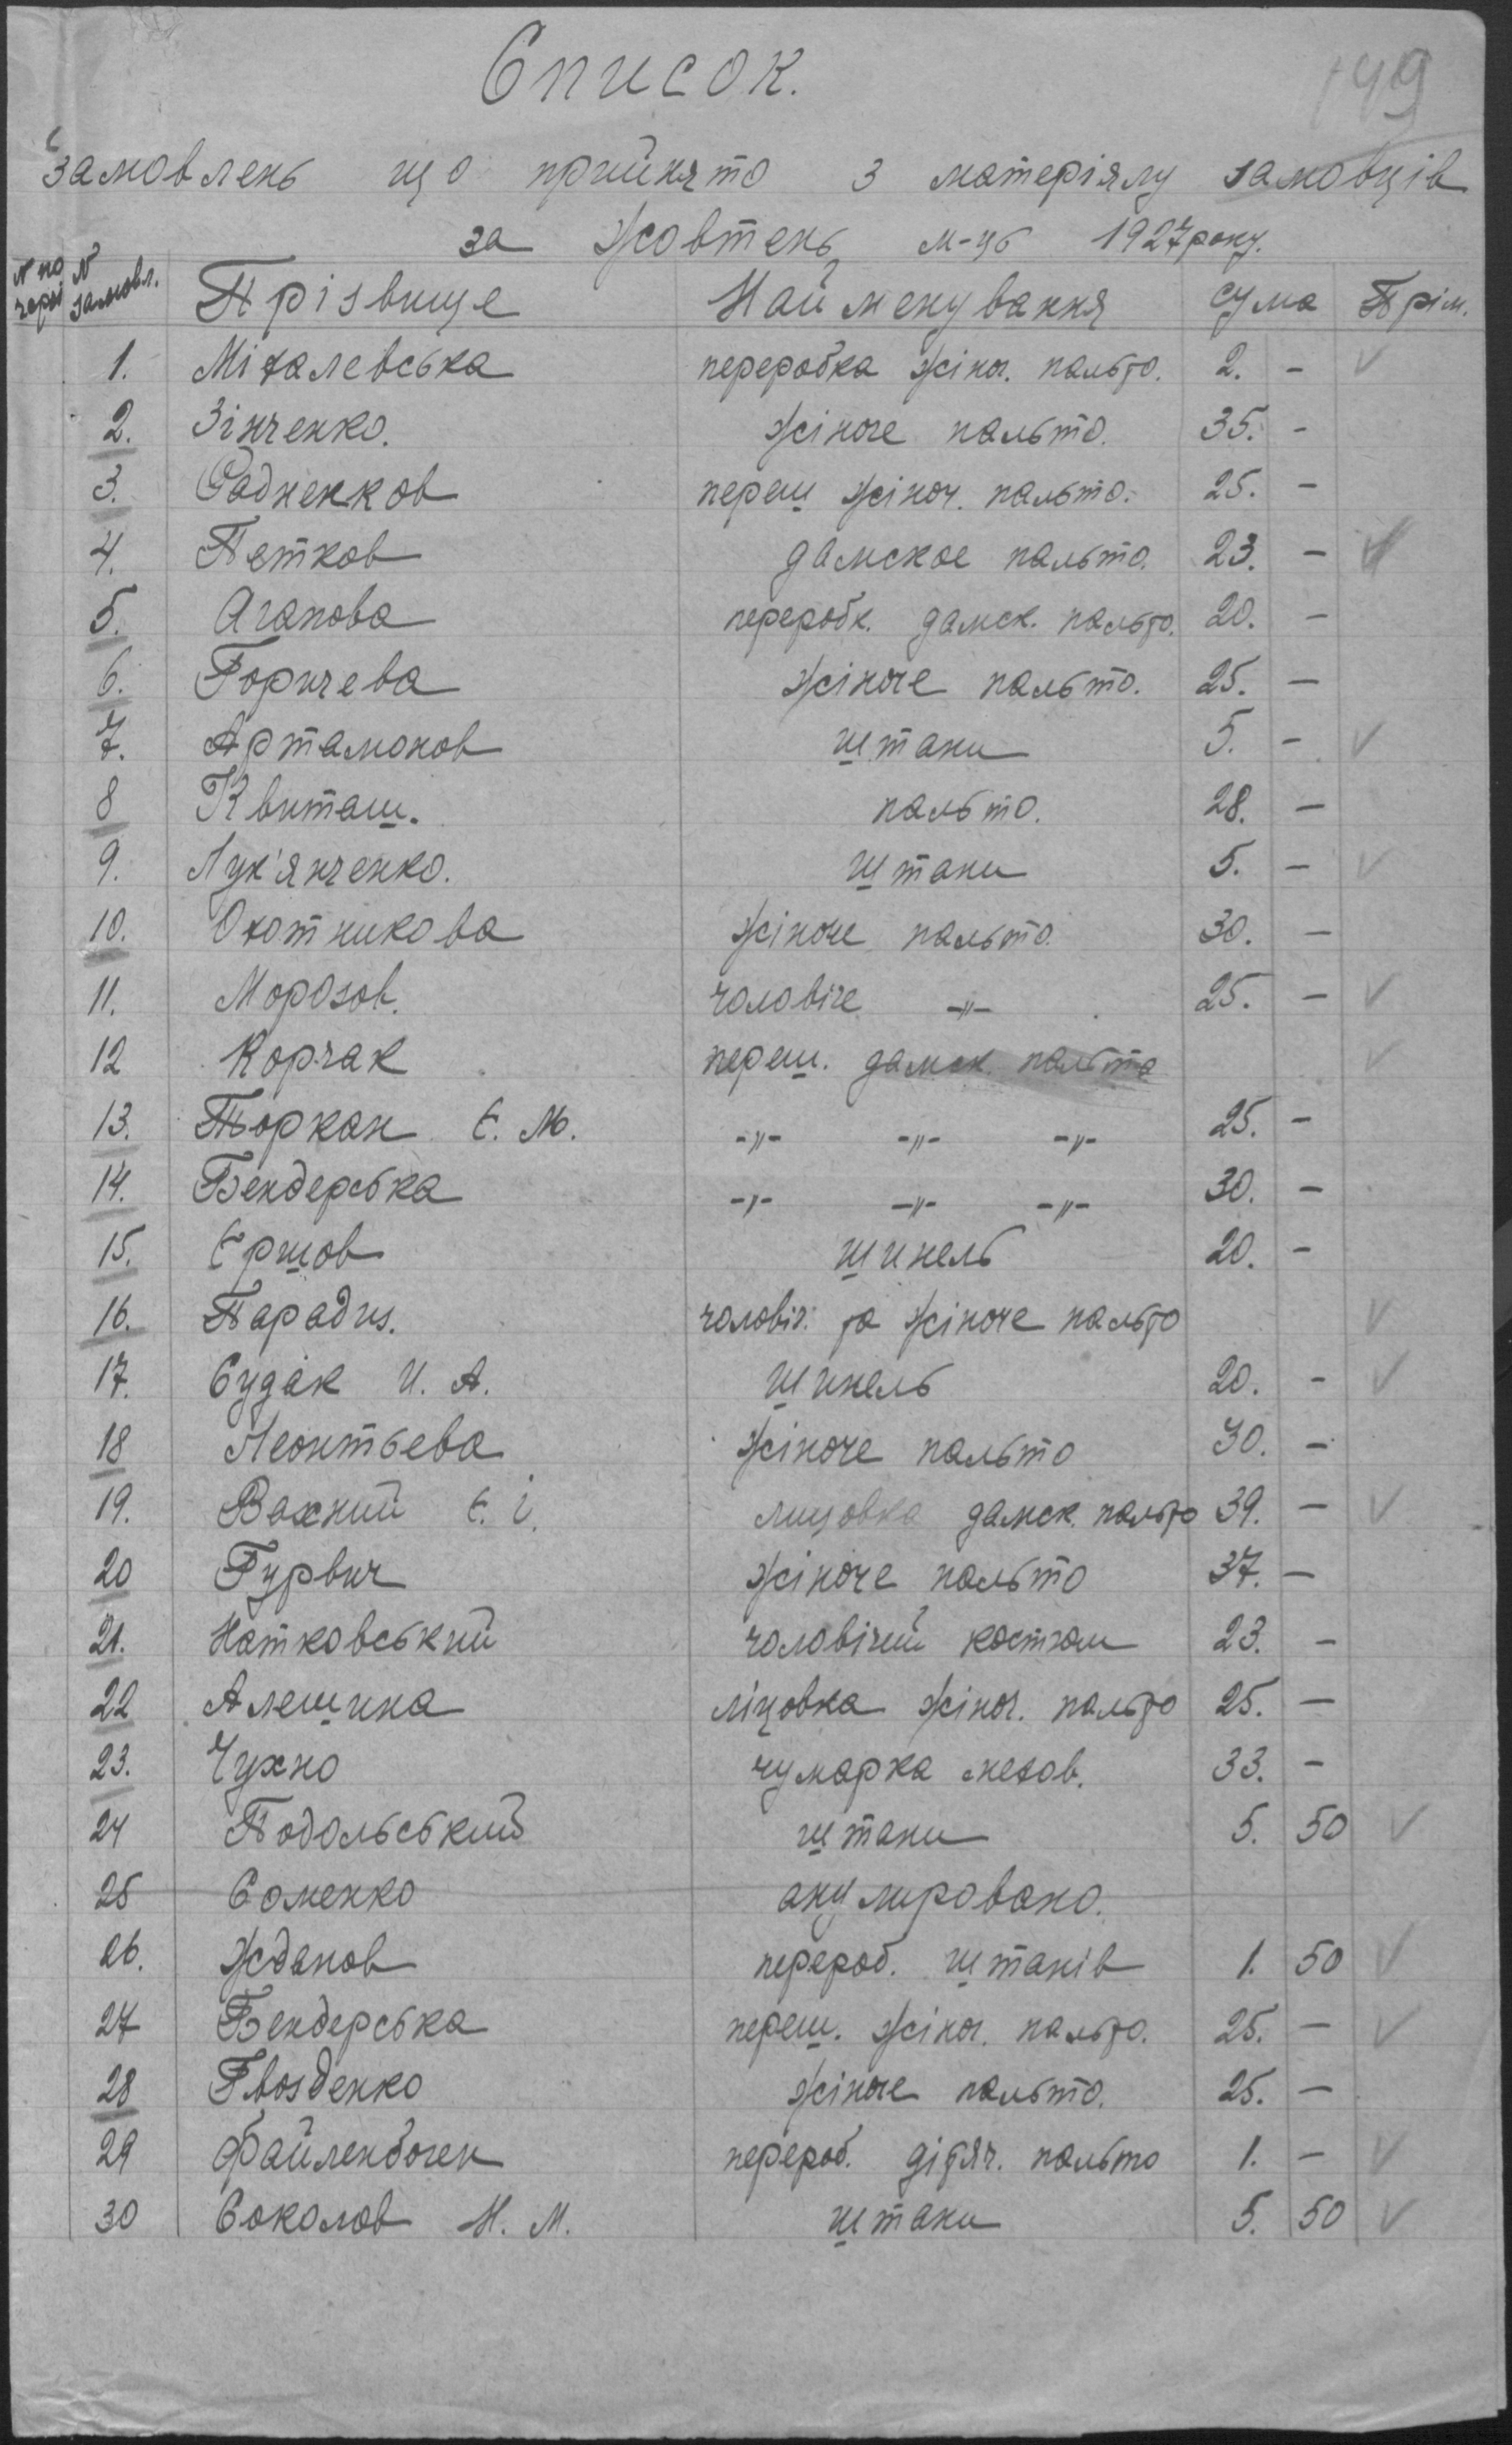 149
Список.
замовлень що прийнято з матеріялу замовців
за жовтень м-ць 1927 року.
№ по черзі № замовл. Прізвище Найменування сума Прім.
1. Міхалевська переробка жіноч. пальто. 2. - ✓
2. Зінченко. жіноче пальто. 35. -
3. Радненков переш жіноч. пальто. 25. -
4. Петков дамское пальто. 23. - ✓
5. Агапова переробк. дамск. пальто. 20. -
6. Горичева жіноче пальто. 25. -
7. Артамонов штани 5. - ✓
8 Квиташ. пальто. 28. -
9. Лук'янченко. штани 5. - ✓
10. Охотникова жіноче пальто. 30. -
11. Морозов. чоловіче -"- 25. - ✓
12 Корчак переш. дамск. пальто ✓
13. Торкан Є. М. -"- -"- -"- 25. -
14. Бендерська -"- -"- -"- 30. -
15. Єршов шинель 20. -
16. Парадиз. чоловіч. та жіноче пальто ✓
17. Судак И. А. шинель 20. - ✓
18 Леонтьева жіноче пальто 30. -
19. Вахний Є. І. лицовка дамск. пальто 39. - ✓
20 Гурвич жіноче пальто 37. -
21. Натковський чоловічий костюм 23. -
22 Алешина ліцовка жіноч. пальто 25. -
23. Чухно чумарка мехов. 33. -
24 Подольський штани 5. 50 ✓
25 Соменко анулировано.
26. Жданов перероб. штанів 1. 50 ✓
27 Бендерська переш. жіноч. пальто. 25. - ✓
28 Гвозденко жіноче пальто. 25. -
29 Файленбоген перероб. дітяч. пальто 1. - ✓
30 Соколов Н. М. штани 5. 50 ✓